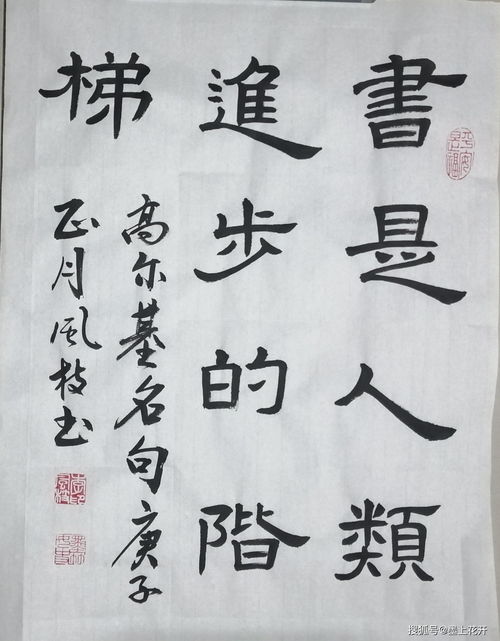 書是人類
進步的階
梯
高尔基名句庚子
正月風枝书
搜狐号@墨上花开